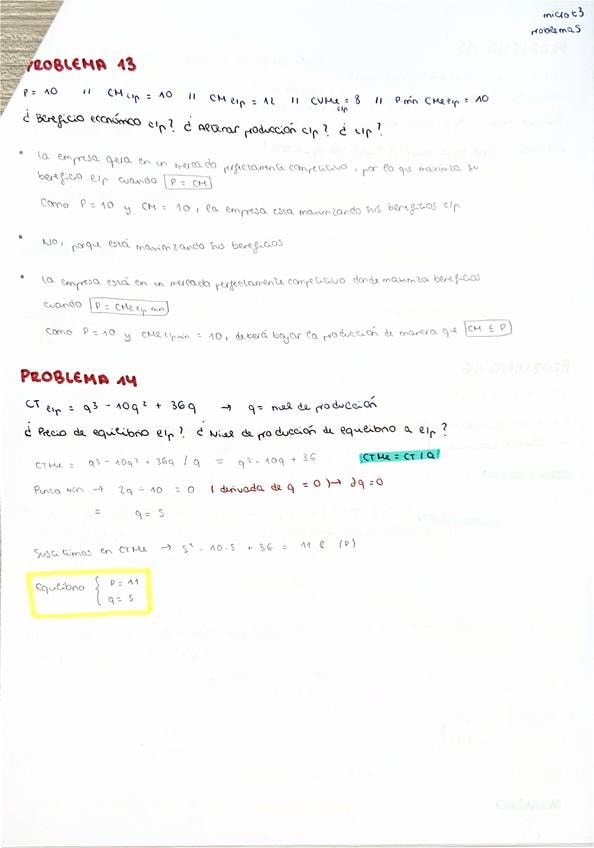 micro t3
problemas
PROBLEMA 13
P = 10 // CM c/p = 10 // CM l/p = 12 // CVMe c/p = 8 // P. mín CMe l/p = 10
¿ Beneficio económico c/p? ¿ Alterar producción c/p? ¿ l/p?
• La empresa opera en un mercado perfectamente competitivo, por lo que maximiza su
beneficio c/p cuando P = CM
Como P = 10 y CM = 10, la empresa esta maximizando sus beneficios c/p
• No, porque está maximizando sus beneficios
• La empresa está en un mercado perfectamente competitivo donde maximiza beneficios
cuando P = CMe l/p min
Como P = 10 y CMe l/p min = 10, deberá bajar la producción de manera que CM ≤ P
PROBLEMA 14
CT l/p = q³ - 10q² + 36q → q = nivel de producción
¿ Precio de equilibrio l/p? ¿ Nivel de producción de equilibrio a l/p?
CTMe = q³ - 10q² + 36q / q = q² - 10q + 36 CTMe = CT / Q
Punto min → 2q - 10 = 0 ( derivada de q = 0 ) → ∂q = 0
= q = 5
Sustituimos en CTMe → 5² - 10·5 + 36 = 11 € (P)
Equilibrio { P = 11
q = 5